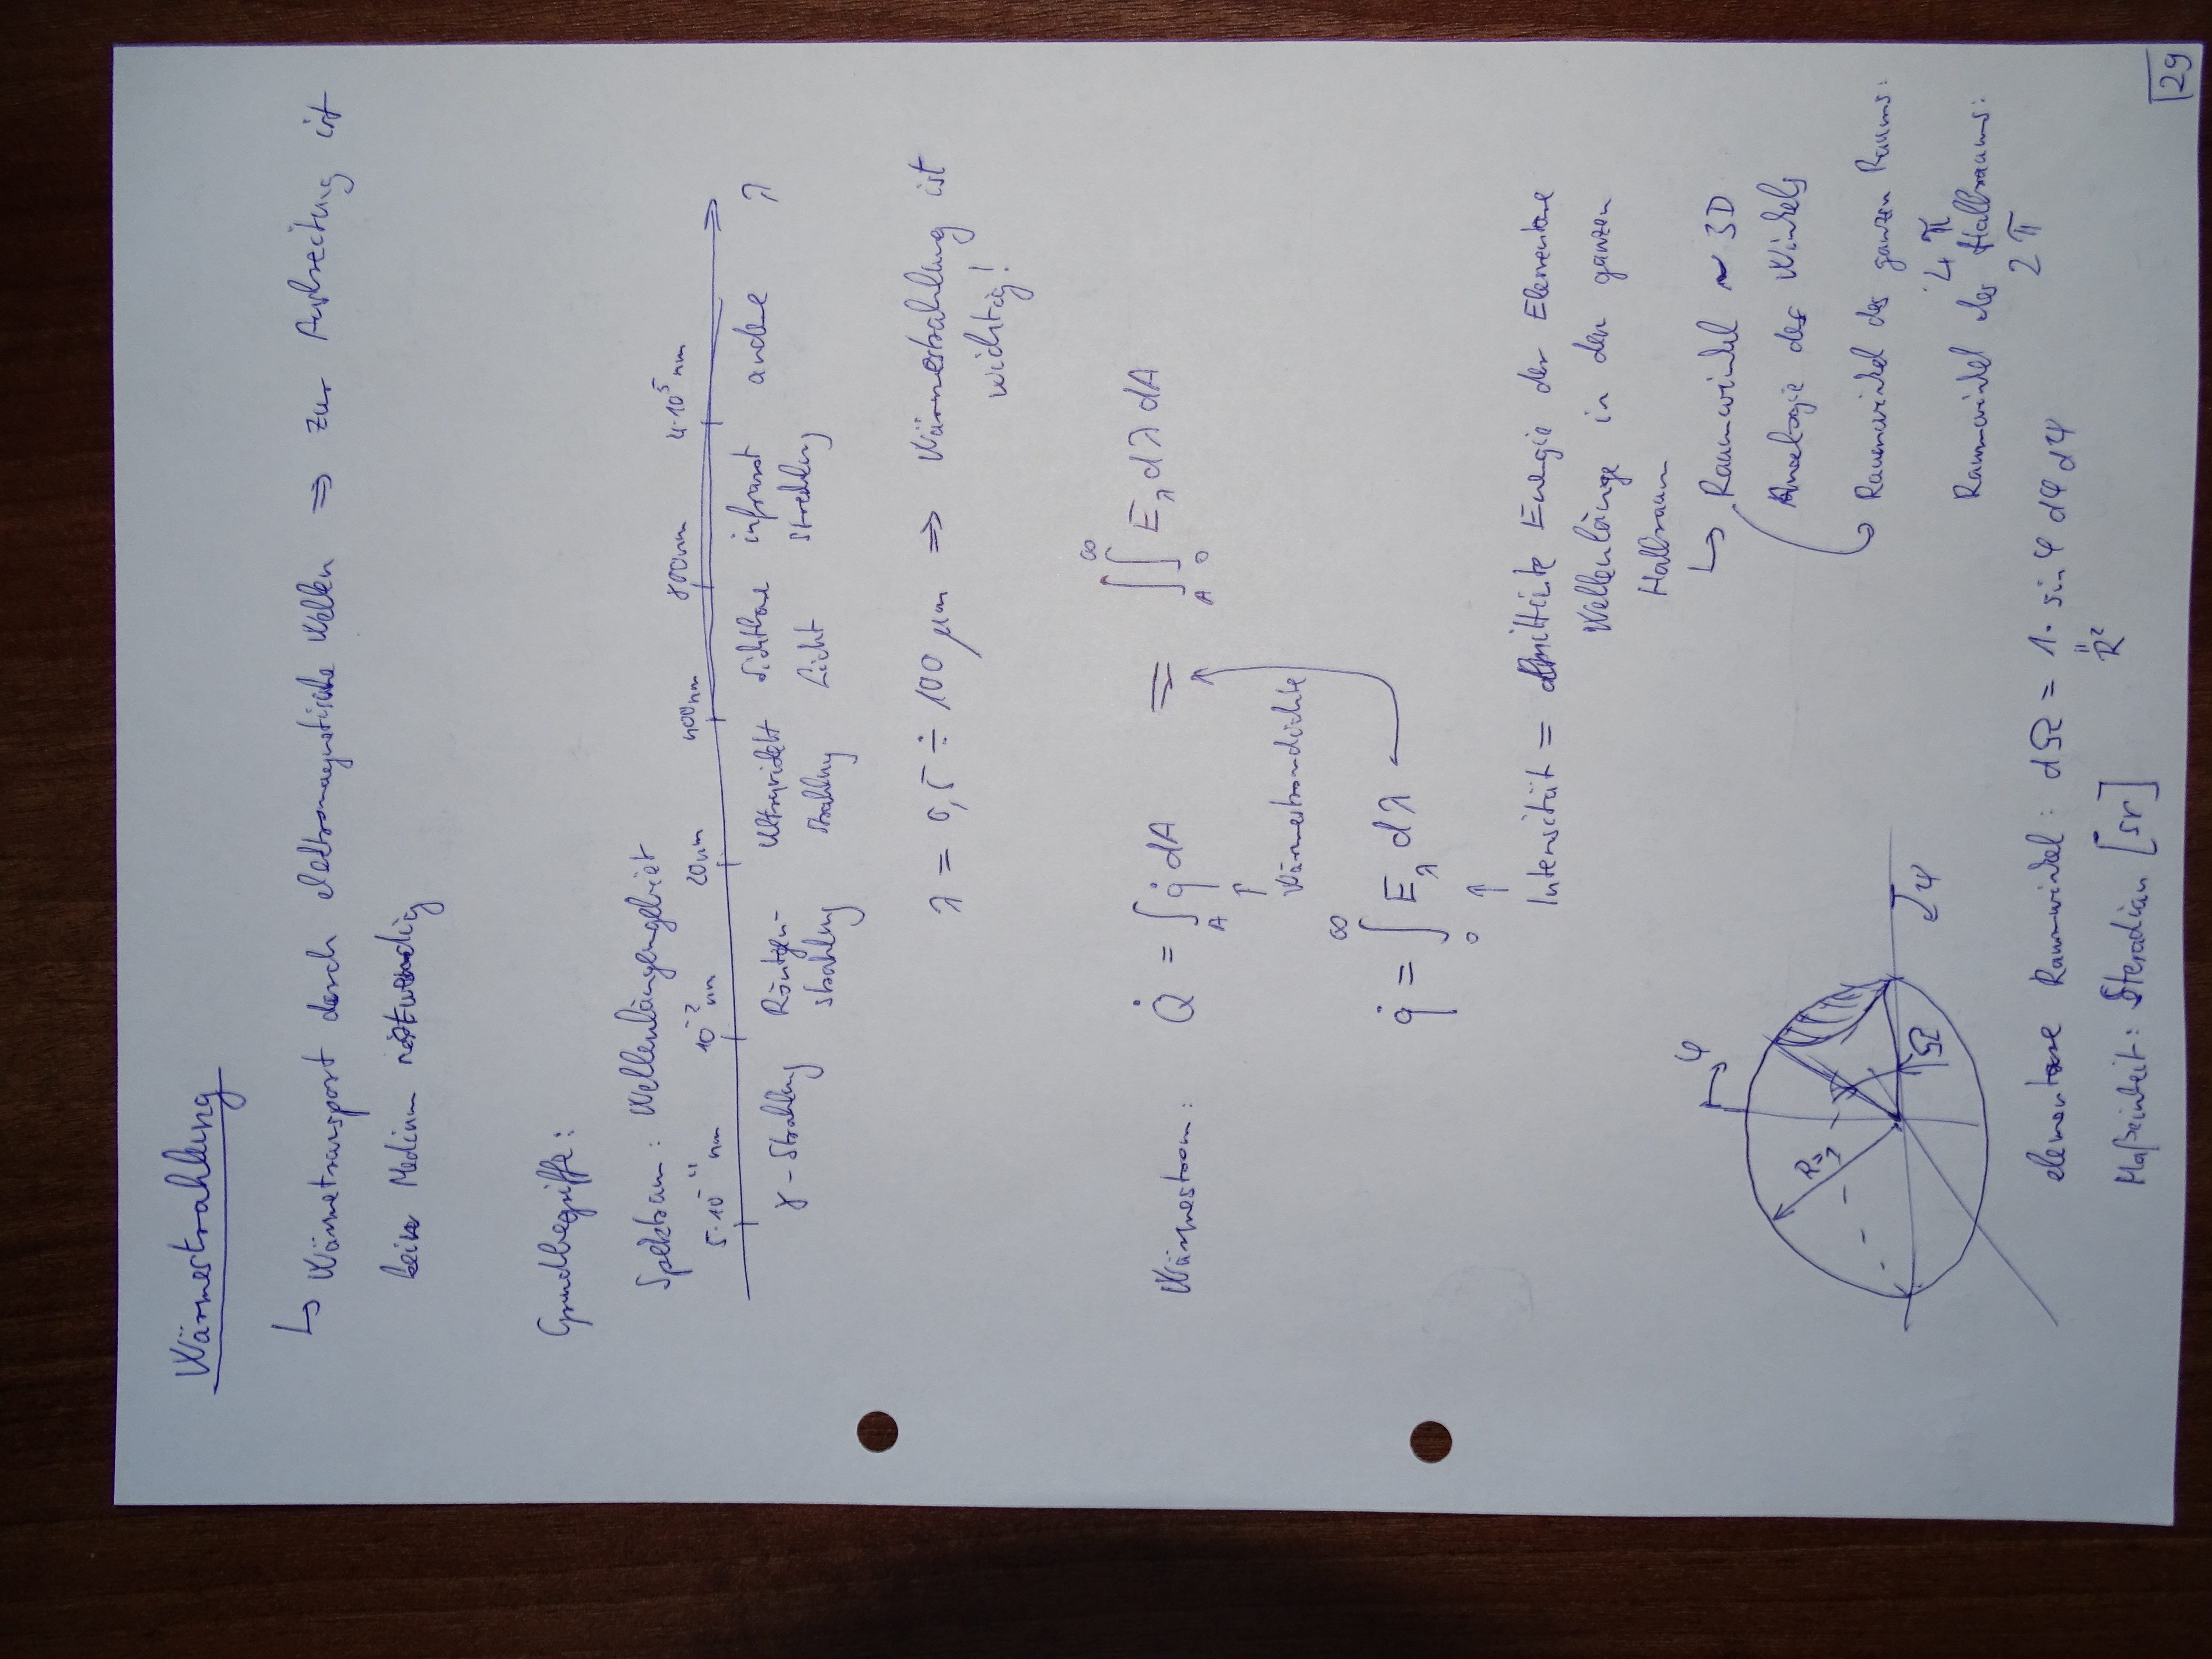 Wärmestrahlung
↳ Wärmetransport durch elektromagnetische Wellen ⇒ zur Ausbreitung ist
kein Medium notwendig
Grundbegriffe:
Spektrum: Wellenlängengebiet
5·10⁻¹¹ nm 10⁻² nm 20nm 400nm 800nm 4·10⁵ nm
γ-Strahlung Röntgen- Ultraviolett Sichtbare infrarot andere λ
strahlung Strahlung Licht Strahlung
λ = 0,5 ÷ 100 μm ⇒ Wärmestrahlung ist
wichtig!
Wärmestrom: Q̇ = ∫_A q̇ dA = ∫_A ∫_0^∞ E_λ dλ dA
↑
Wärmestromdichte
q̇ = ∫_0^∞ E_λ dλ
↑
Intensität = emittierte Energie der Elementare
Wellenlänge in den ganzen
Halbraum
↳ Raumwinkel ~ 3D
Analogie des Winkels
Raumwinkel des ganzen Raums:
4π
Raumwinkel des Halbraums:
2π
φ
R=1
Ω
ψ
elementare Raumwinkel: dΩ = 1 · sin φ dφ dψ
"
R²
Maßeinheit: Steradian [sr]
29